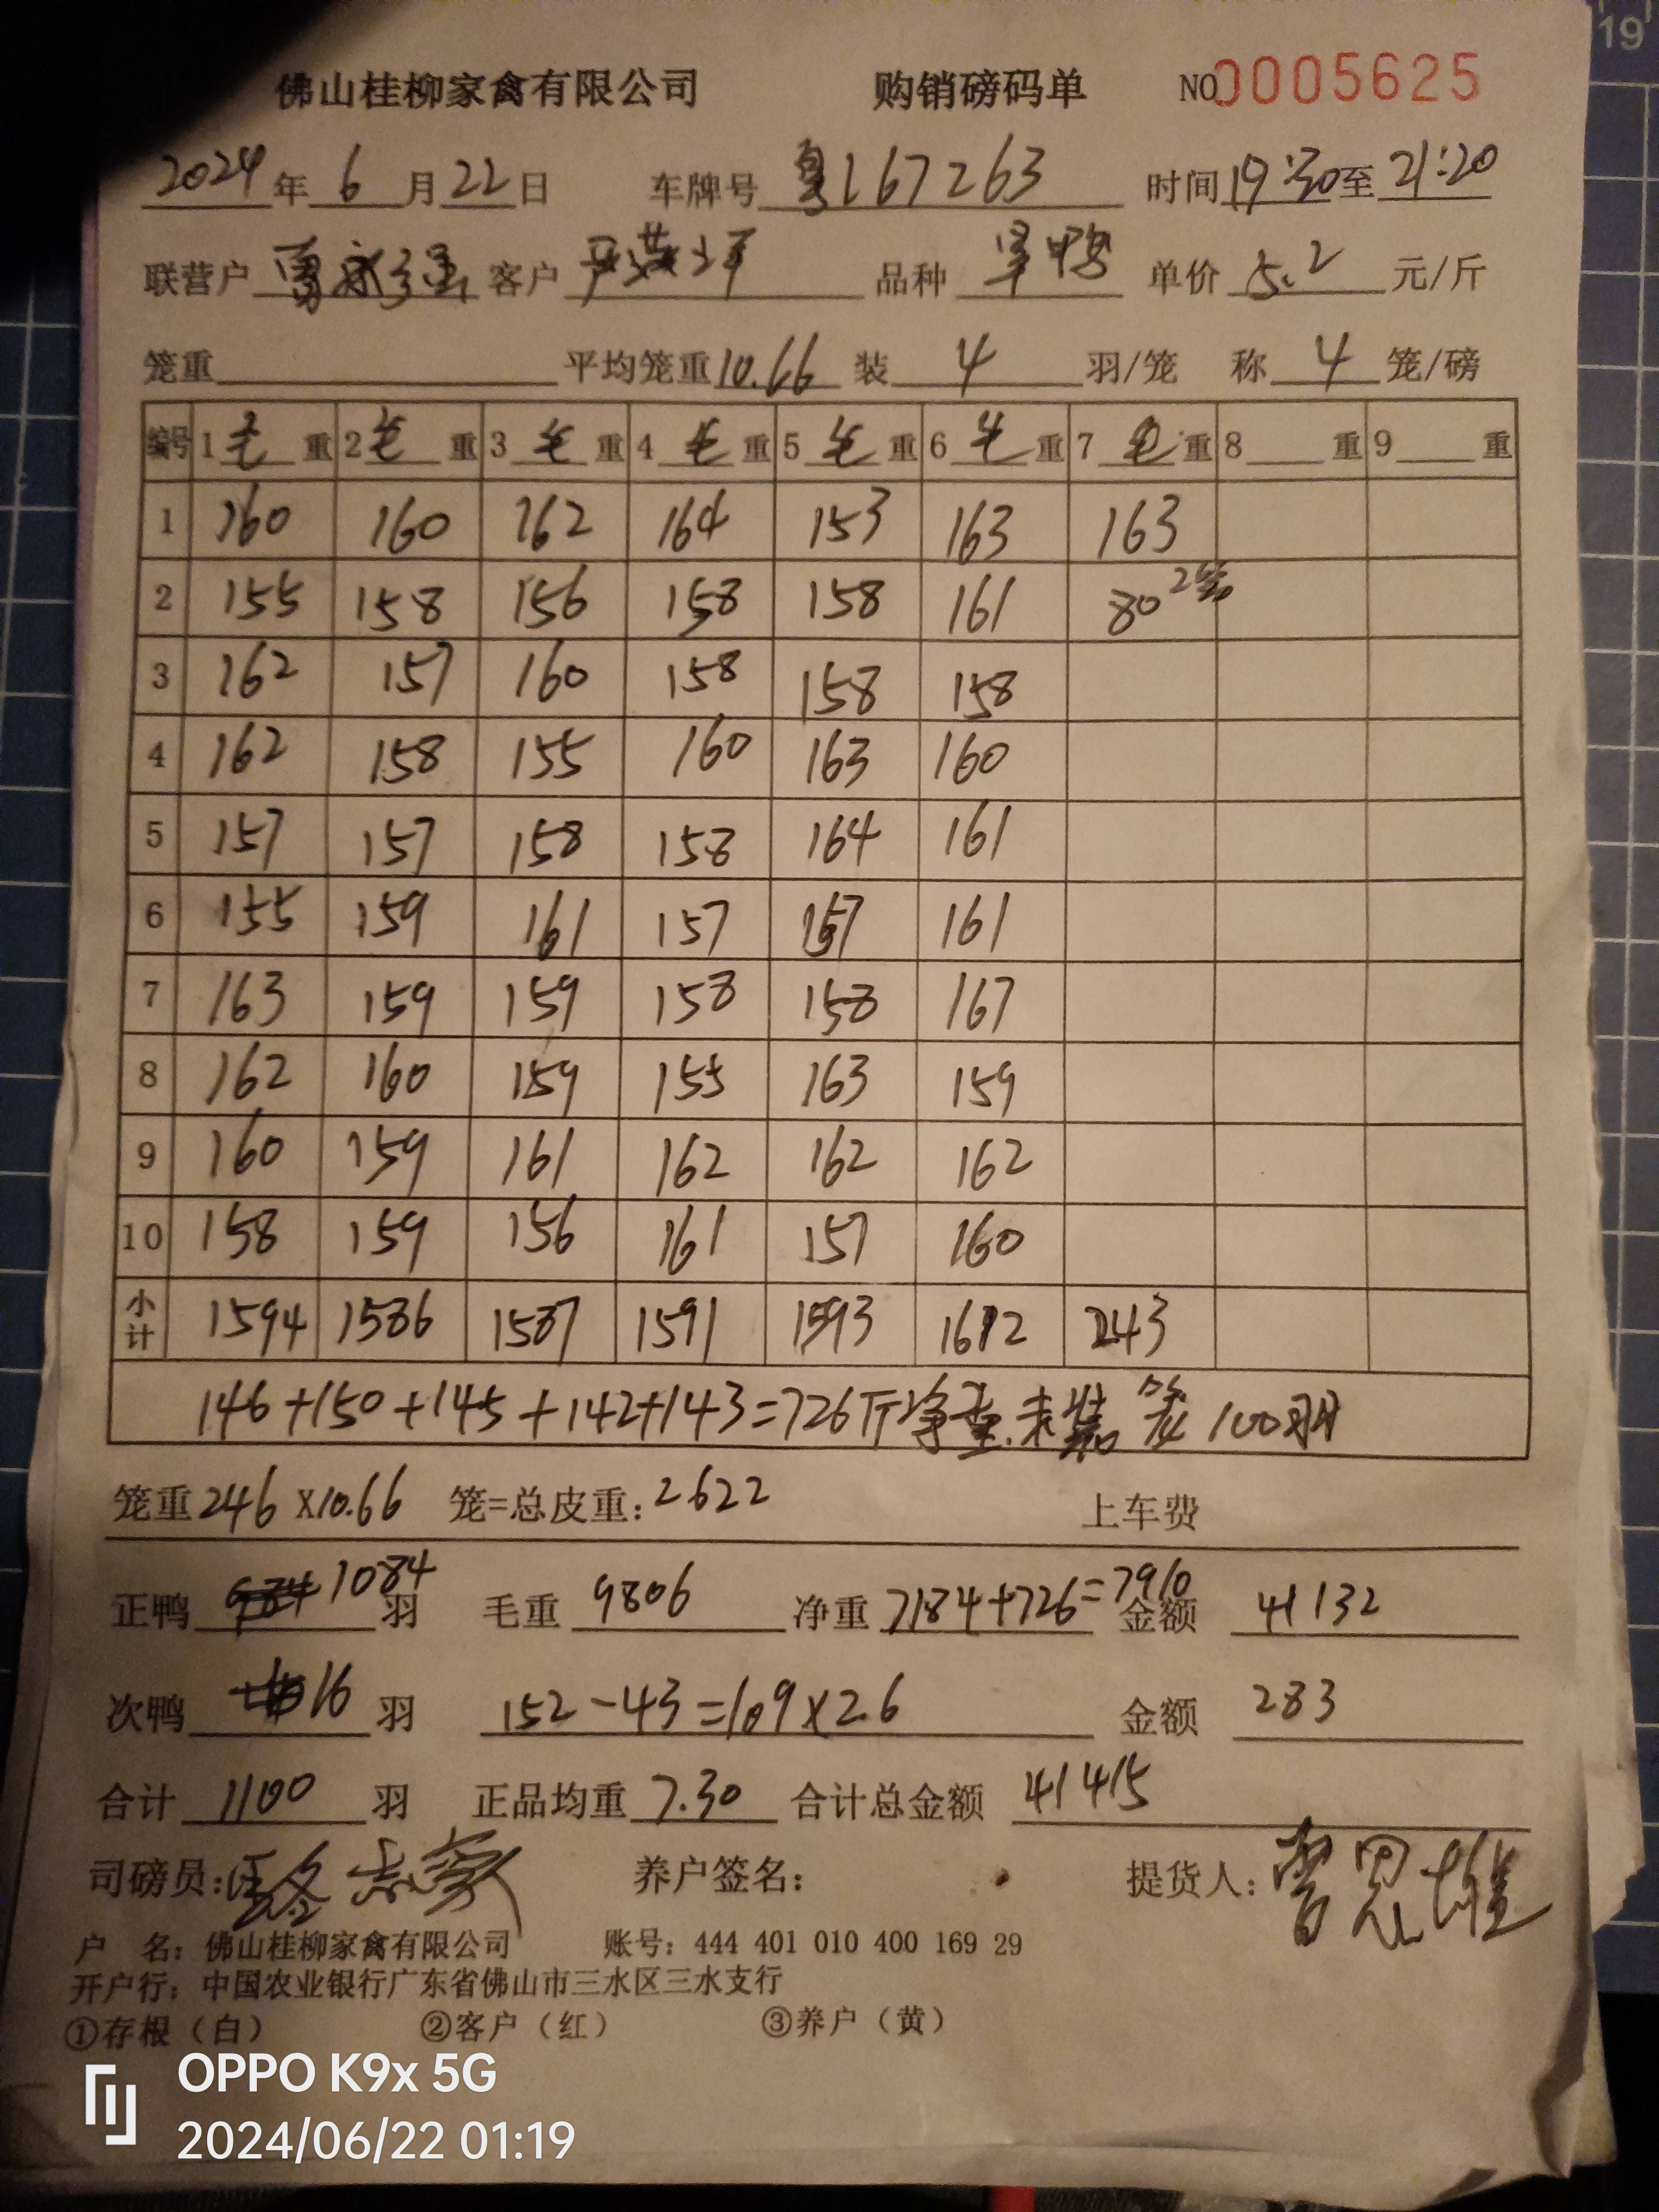 19
佛山桂柳家禽有限公司 购销磅码单 NO 0005625
2024年6月22日 车牌号 粤L67263 时间19:30至21:20
联营户 客户 品种 单价 5.2 元/斤
笼重 平均笼重10.66 装 4 羽/笼 称 4 笼/磅
编号 1毛重 2毛重 3毛重 4毛重 5毛重 6毛重 7毛重 8 重 9 重
1 160 160 162 164 153 163 163
2 155 158 156 158 158 161 80 2笼
3 162 157 160 158 158 158
4 162 158 155 160 163 160
5 157 157 158 158 164 161
6 155 159 161 157 157 161
7 163 159 159 158 158 167
8 162 160 159 155 163 159
9 160 159 161 162 162 162
10 158 159 156 161 157 160
小计 1594 1586 1587 1591 1593 1612 243
146+150+145+142+143=726斤净重.未装笼100羽
笼重246 X10.66 笼=总皮重:2622 上车费
正鸭 984 1084 羽 毛重 9806 净重 7184+726=7910 金额 41132
次鸭 16 羽 152-43=109X2.6 金额 283
合计 1100 羽 正品均重 7.30 合计总金额 41415
司磅员: 养户签名: 提货人:
户 名:佛山桂柳家禽有限公司 账号:444 401 010 400 169 29
开户行:中国农业银行广东省佛山市三水区三水支行
①存根(白) ②客户(红) ③养户(黄)
OPPO K9x 5G
2024/06/22 01:19